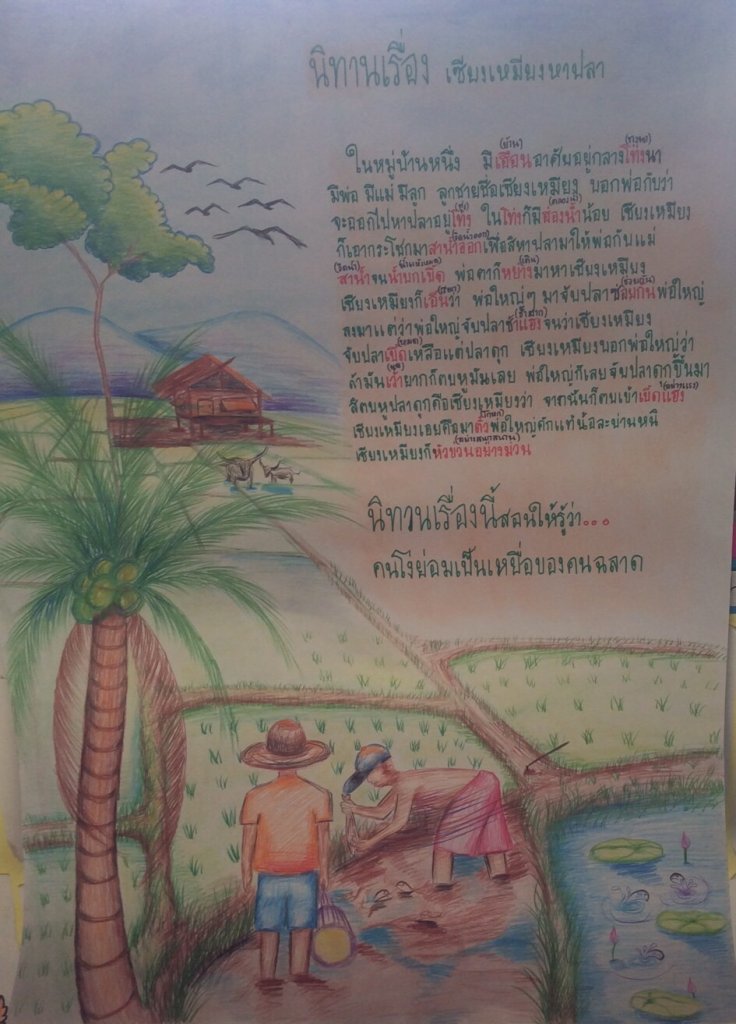 นิทานเรื่อง เซียงเหมียงหาปลา
ในหมู่บ้านหนึ่ง มีเฮือน(บ้าน)อาศัยอยู่กลางโท่งนา(ทุ่งนา)
มีพ่อ มีแม่ มีลูก ลูกชายชื่อเซียงเหมียง บอกพ่อกับว่า
จะออกไปหาปลาอยู่โท่ง(ทุ่ง) ในโท่งก็มีสองน้ำน้อย เซียงเหมียง
ก็เอากระโซ่มาสาน้ำออกเพื่อสิหาปลามาให้พ่อกับแม่
สาน้ำ(วิดน้ำ)จนน้ำบกเบิ๊ด พ่อตาก็หย่าง(เดิน)มาหาเซียงเหมียง
เซียงเหมียงก็เอิ้นว่า พ่อใหญ่ๆ มาจับปลาซ่อยกันพ่อใหญ่
ลงมาแต่ว่าพ่อใหญ่จับปลาซ้าแฮงจนว่าเซียงเหมียง
จับปลาเบิ๊ด(หมด)เหลือแต่ปลาดุก เซียงเหมียงบอกพ่อใหญ่ว่า
ถ้ามันเว้า(พูด)ยากก็ตบหูมันเลย พ่อใหญ่ก็เลยจับปลาดุกขึ้นมา
สิตบหูปลาดุกคือเซียงเหมียงว่า จากนั้นก็ตบเข้าเบิ๊ดแฮง
เซียงเหมียงเอยคือมาตั๋ว(โกหก)พ่อใหญ่คักแท้น้อละย่านหนิ
เซียงเหมียงก็หัวขวนอย่างม่วน(อย่างสนุกสนาน)
นิทวนเรื่องนี้สอนให้รู้ว่า...
คนโง่ย่อมเป็นเหยื่อของคนฉลาด